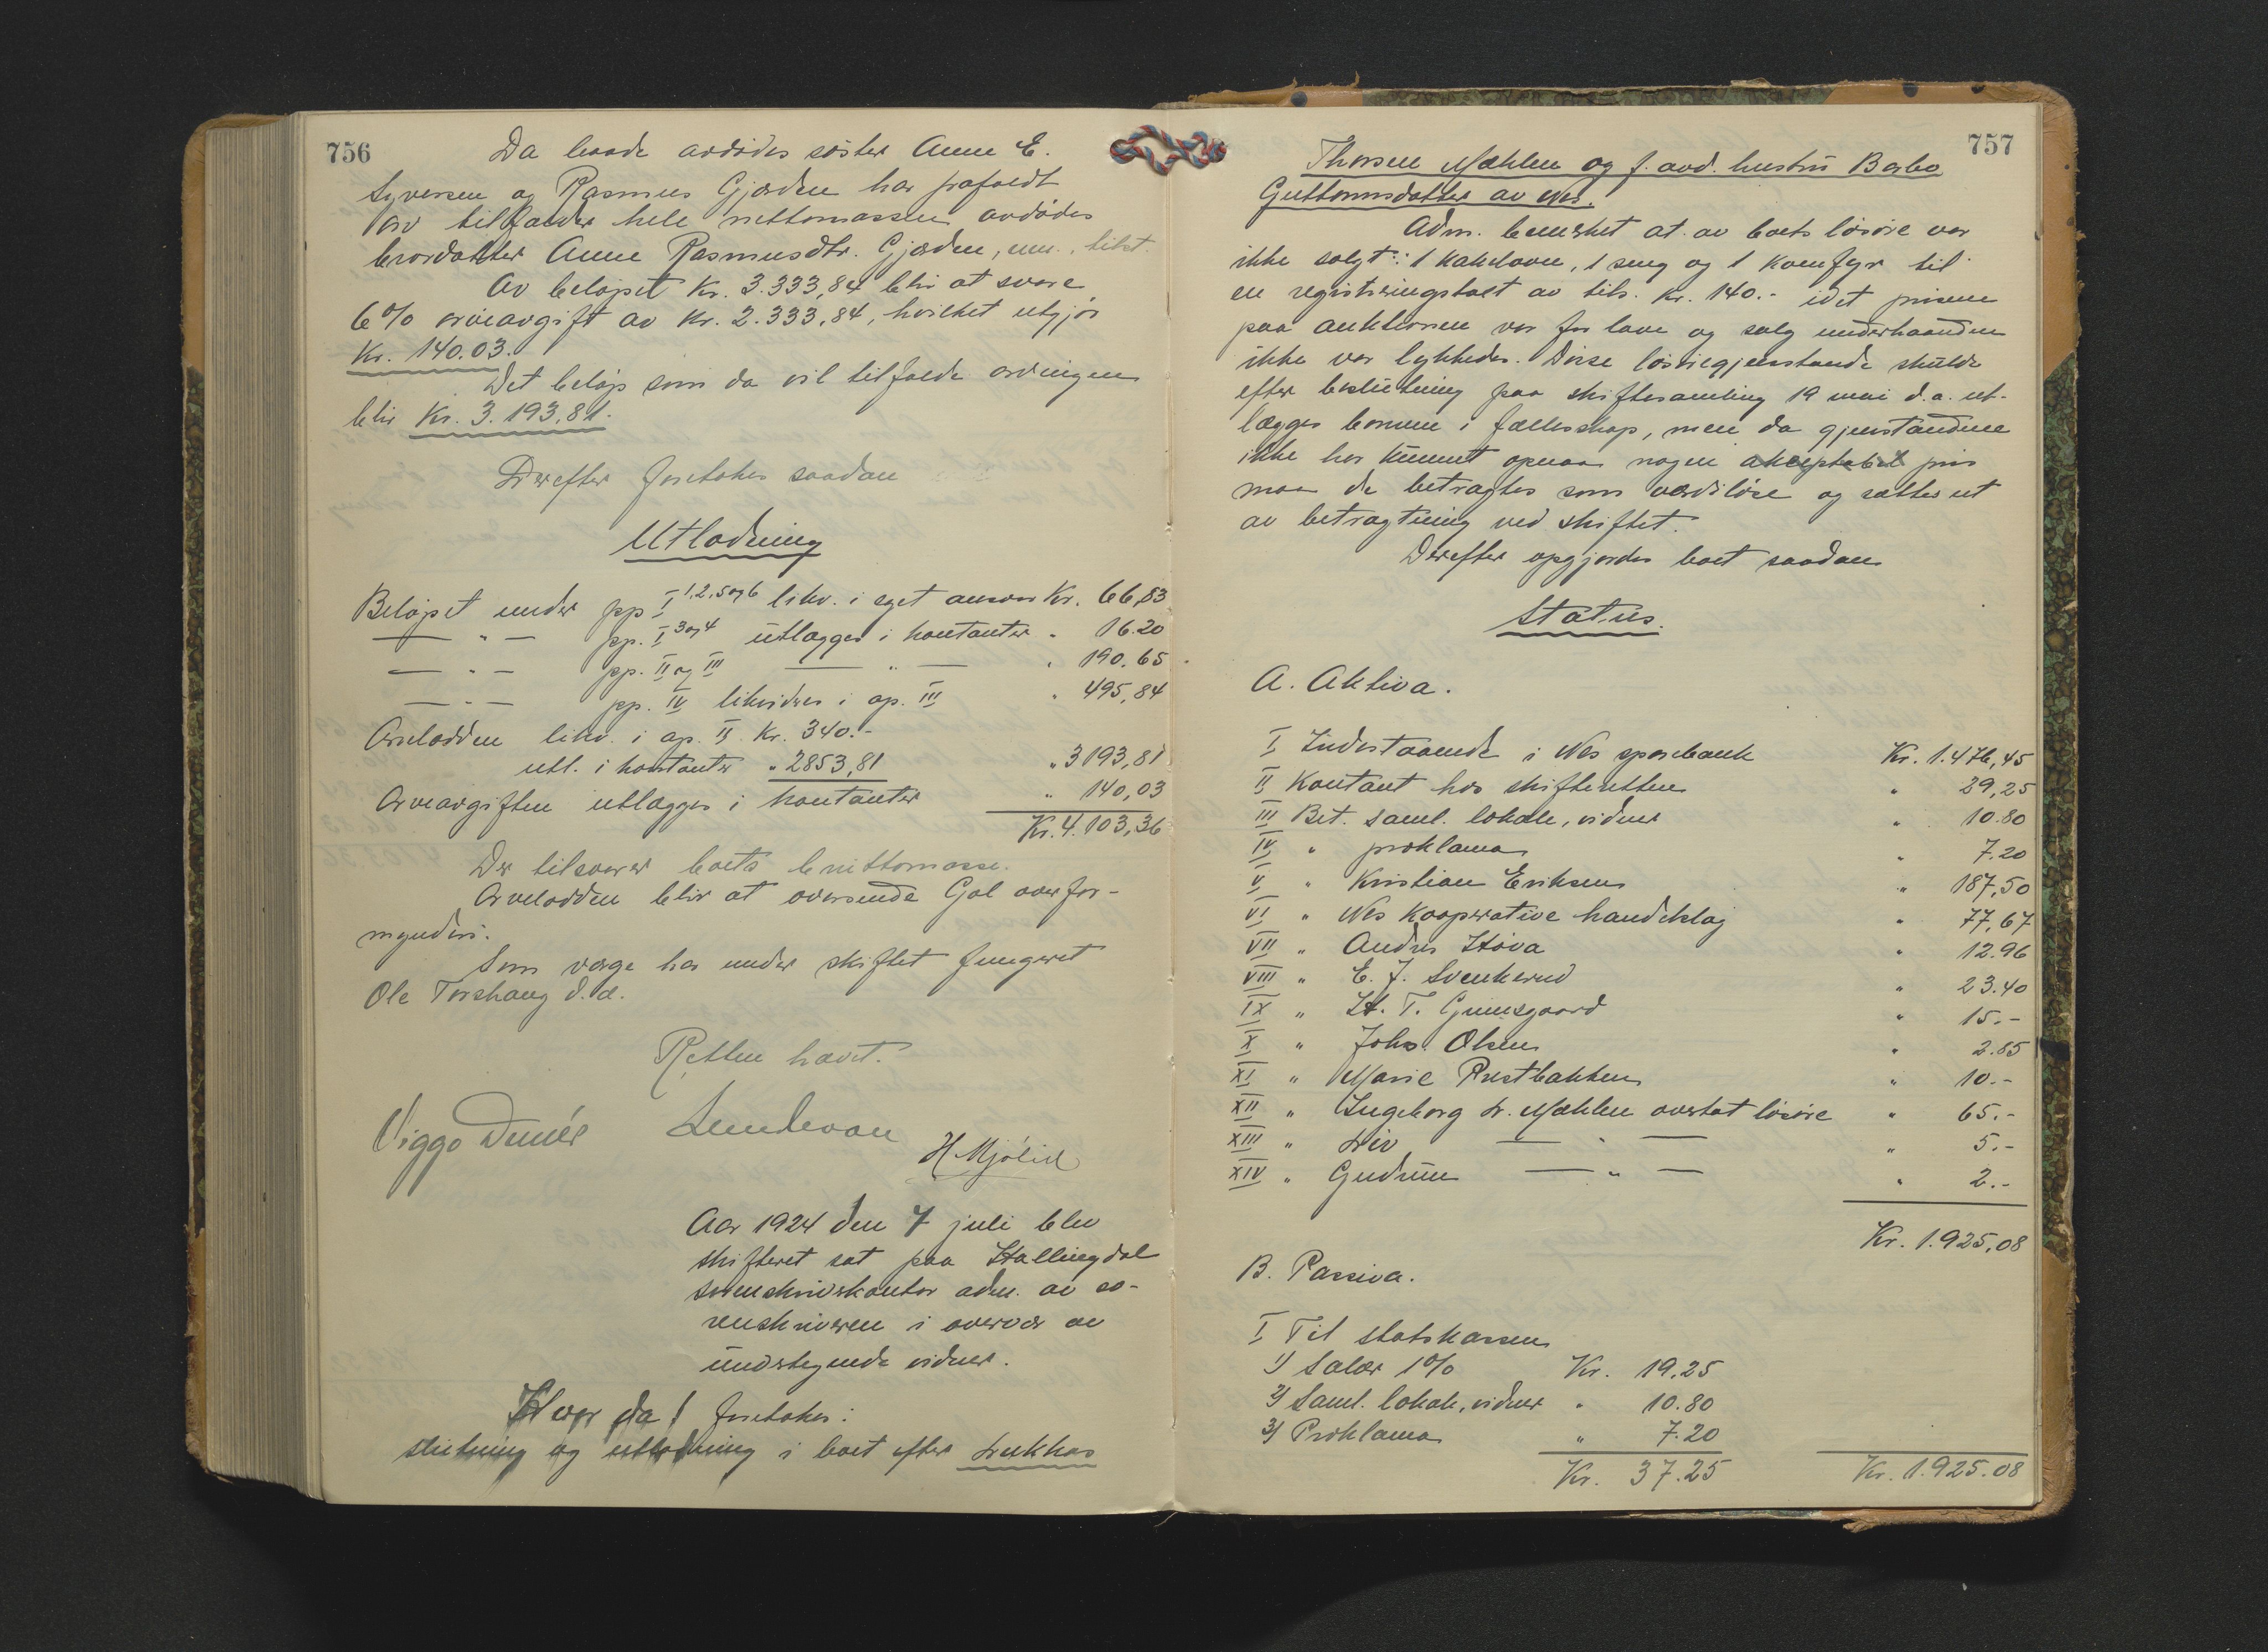 756
Da baade avdødes søster Anne E.
Syversen og Rasmus Gjærden har frafaldt
arv tilfalder hele nettomassen avdødes
brordatter Anne Rasmusdtr. Gjærden, um. tilst.
Av beløpet Kr. 3.333,84 blir at svare
6% arveavgift av Kr. 2.333,84, hvilket utgjør
Kr. 140.03.
Det beløp som da vil tilfalde arvingen
blir Kr. 3.193,81.
Derefter foretokes saadan
Utlodning
Beløpet under pp I 1,2,5 og 6 likv. i eget ansvar Kr. 66,83
— " — pp. I 3 og 4 utlægges i kontanter " 16.20
— " — pp. II og III — " — " 190.65
— " — pp. IV likvideres i ap. III " 495,84
Arvelodden likv. i ap. II Kr. 340.-
utl. i kontanter " 2853,81 " 3193,81
Arveavgiften utlægges i kontanter " 140,03
Kr. 4.103,36
Der tilsvarer boets bruttomasse.
Arvelodden blir at oversende Gol overfor-
mynderi.
Som værge har under skiftet fungeret
Ole Torshaug d.æ.
Retten hævet.
Viggo Lundevan
H Mjølid
Aar 1924 den 7 juli blev
skifteret sat paa Hallingdal
sorenskriverkontor adm. av so-
renskriveren i overvær av
undertegnede vidner.
Hvor da! foretokes:
slutning og utlodning i boet efter enkkas
757
Thorsen Mæhlen og f. avd. hustru Barbo
Guttormsdatter av Nes.
Adm. bemerket at av boets løsøre var
ikke solgt: 1 kakelovn, 1 seng og 1 komfyr til
en registreringstakt av tils. kr. 140.- idet prisene
paa auktionen var for lave og salg underhaanden
ikke var lykkedes. Disse løsøregjenstande skulde
efter beslutning paa skiftesamling 19 mai d.a. ut-
lægges barnene i fællesskap, men da gjenstandene
ikke har kunnet opnaa nogen akceptabel pris
maa de betragtes som værdiløse og sættes ut
av betragtning ved skiftet.
Derefter opgjordes boet saadan
Status.
A. Aktiva.
I Indestaaende i Nes sparebank Kr. 1.476,45
II Kontant hos skifteretten " 29,25
III Bet. saml. lokale, vidner " 10.80
IV " proklama " 7.20
V " Kristian Eriksen " 187,50
VI " Nes kooperative handelslag " 77,67
VII " Andres Høva " 12.96
VIII " E. J. Svenkerud " 23.40
IX " H. T. Grimsgaard " 15.-
X " Johs. Olsen " 2.85
XI " Marie Rustbakken " 10.-
XII " Ingeborg L. Mæhlen overtat løsøre " 65.-
XIII " Liv — " — " 5.-
XIV " Gudrun — " — " 2.-
Kr. 1.925,08
B. Passiva.
I Til statskassen
1) Salær 1% Kr. 19.25
2) Saml. lokale, vidner " 10.80
3) Proklama " 7.20
Kr. 37.25 Kr. 1.925.08